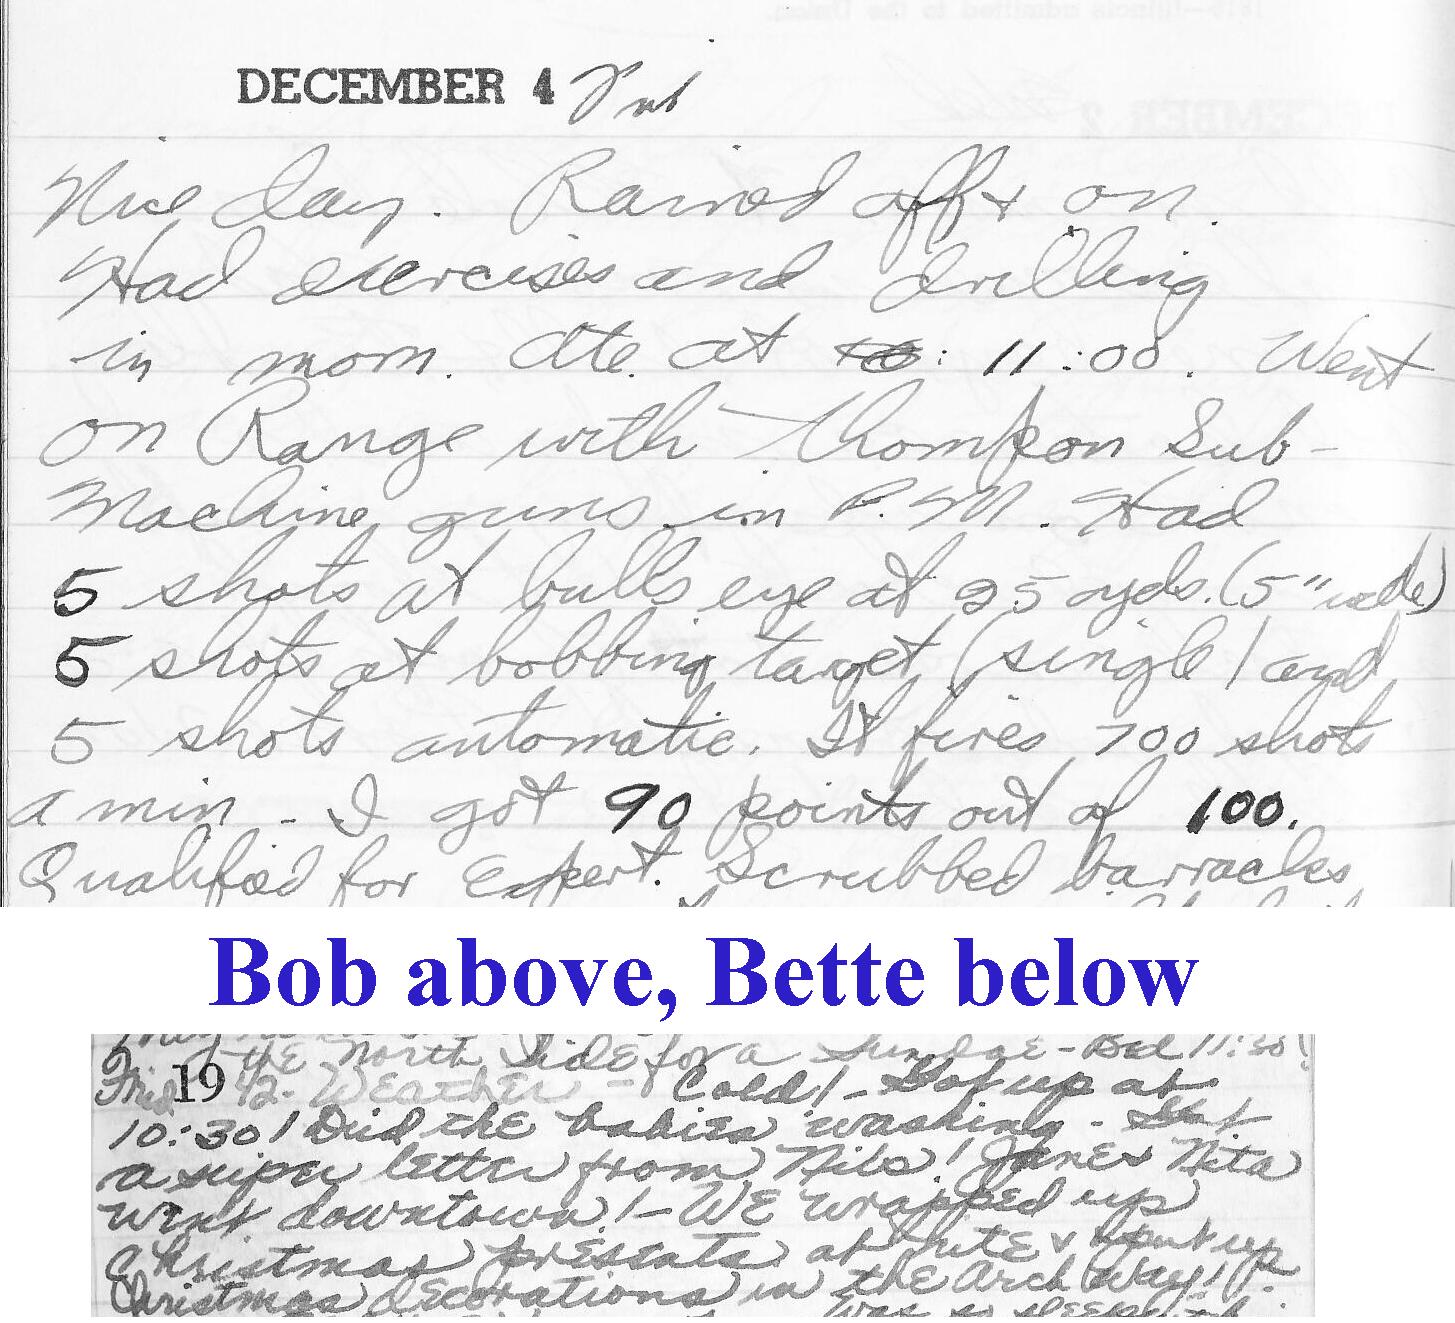 DECEMBER 4
Nice day. Rained off & on.
Had exercises and drilling
in morn. Ate at 11:00. Went
on Range with Thompson Sub-
Machine guns in P.M. Had
5 shots at bulls eye at 25 yds. (5" wide)
5 shots at bobbing target (single) and
5 shots automatic. It fires 700 shots
a min. I got 90 points out of 100.
Qualified for Expert. Scrubbed barracks
Bob above, Bette below
the North Side for a Sundae - Bed 11:30!
1942. Weather - Cold! - Got up at
10:30! Did the babies washing - Got
a super letter from Nibs! Jane & Nita
went downtown! - WE wrapped up
Christmas presents at nite & put up
Christmas decorations in the Arch Way!
was so sleepy